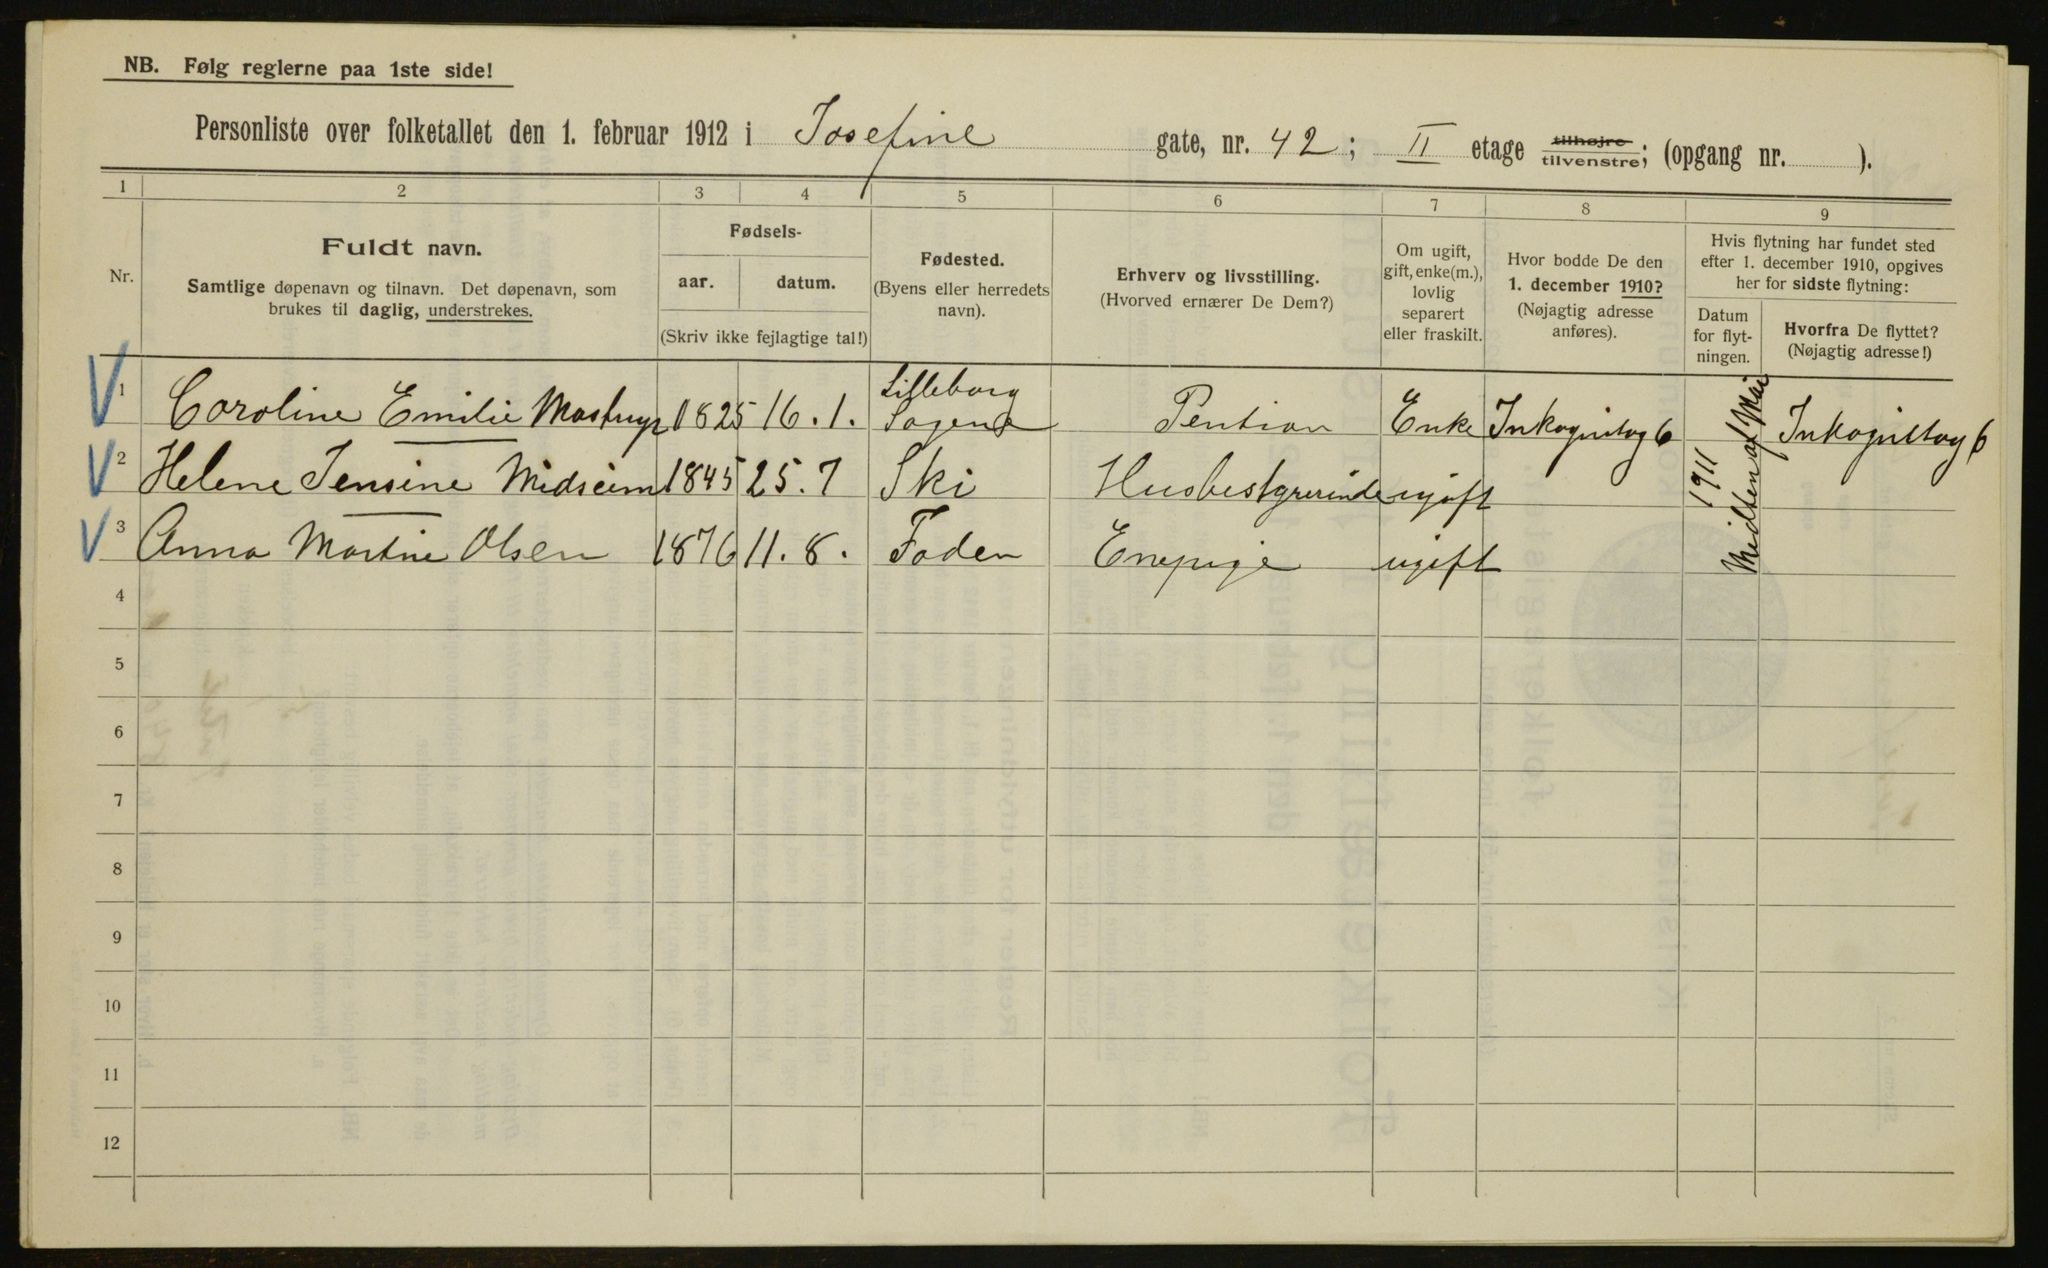 NB. Følg reglerne paa 1ste side!
Personliste over folketallet den 1. februar 1912 i Josefine gate, nr. 42; II etage tilhøjre tilvenstre; (opgang nr. ).
1 2 3 4 5 6 7 8 9
Nr.
Fuldt navn.
Samtlige døpenavn og tilnavn. Det døpenavn, som
brukes til daglig, understrekes.
Fødsels-
aar. datum.
(Skriv ikke fejlagtige tal!)
Fødested.
(Byens eller herredets
navn).
Erhverv og livsstilling.
(Hvorved ernærer De Dem?)
Om ugift,
gift, enke(m.),
lovlig
separert
eller fraskilt.
Hvor bodde De den
1. december 1910?
(Nøjagtig adresse
anføres).
Hvis flytning har fundet sted
efter 1. december 1910, opgives
her for sidste flytning:
Datum
for flyt-
ningen.
Hvorfra De flyttet?
(Nøjagtig adresse!)
1 Caroline Emilie Mastrup 1825 16.1. Lilleborg Sagene Pention Enke Inkognitog 6 Midten af Mai 1911 Inkognitog 6
2 Helene Jensine Midseim 1845 25.7 Ski Husbestyrerinde ugift
3 Anna Martine Olsen 1876 11.8. Enepige ugift
4
5
6
7
8
9
10
11
12